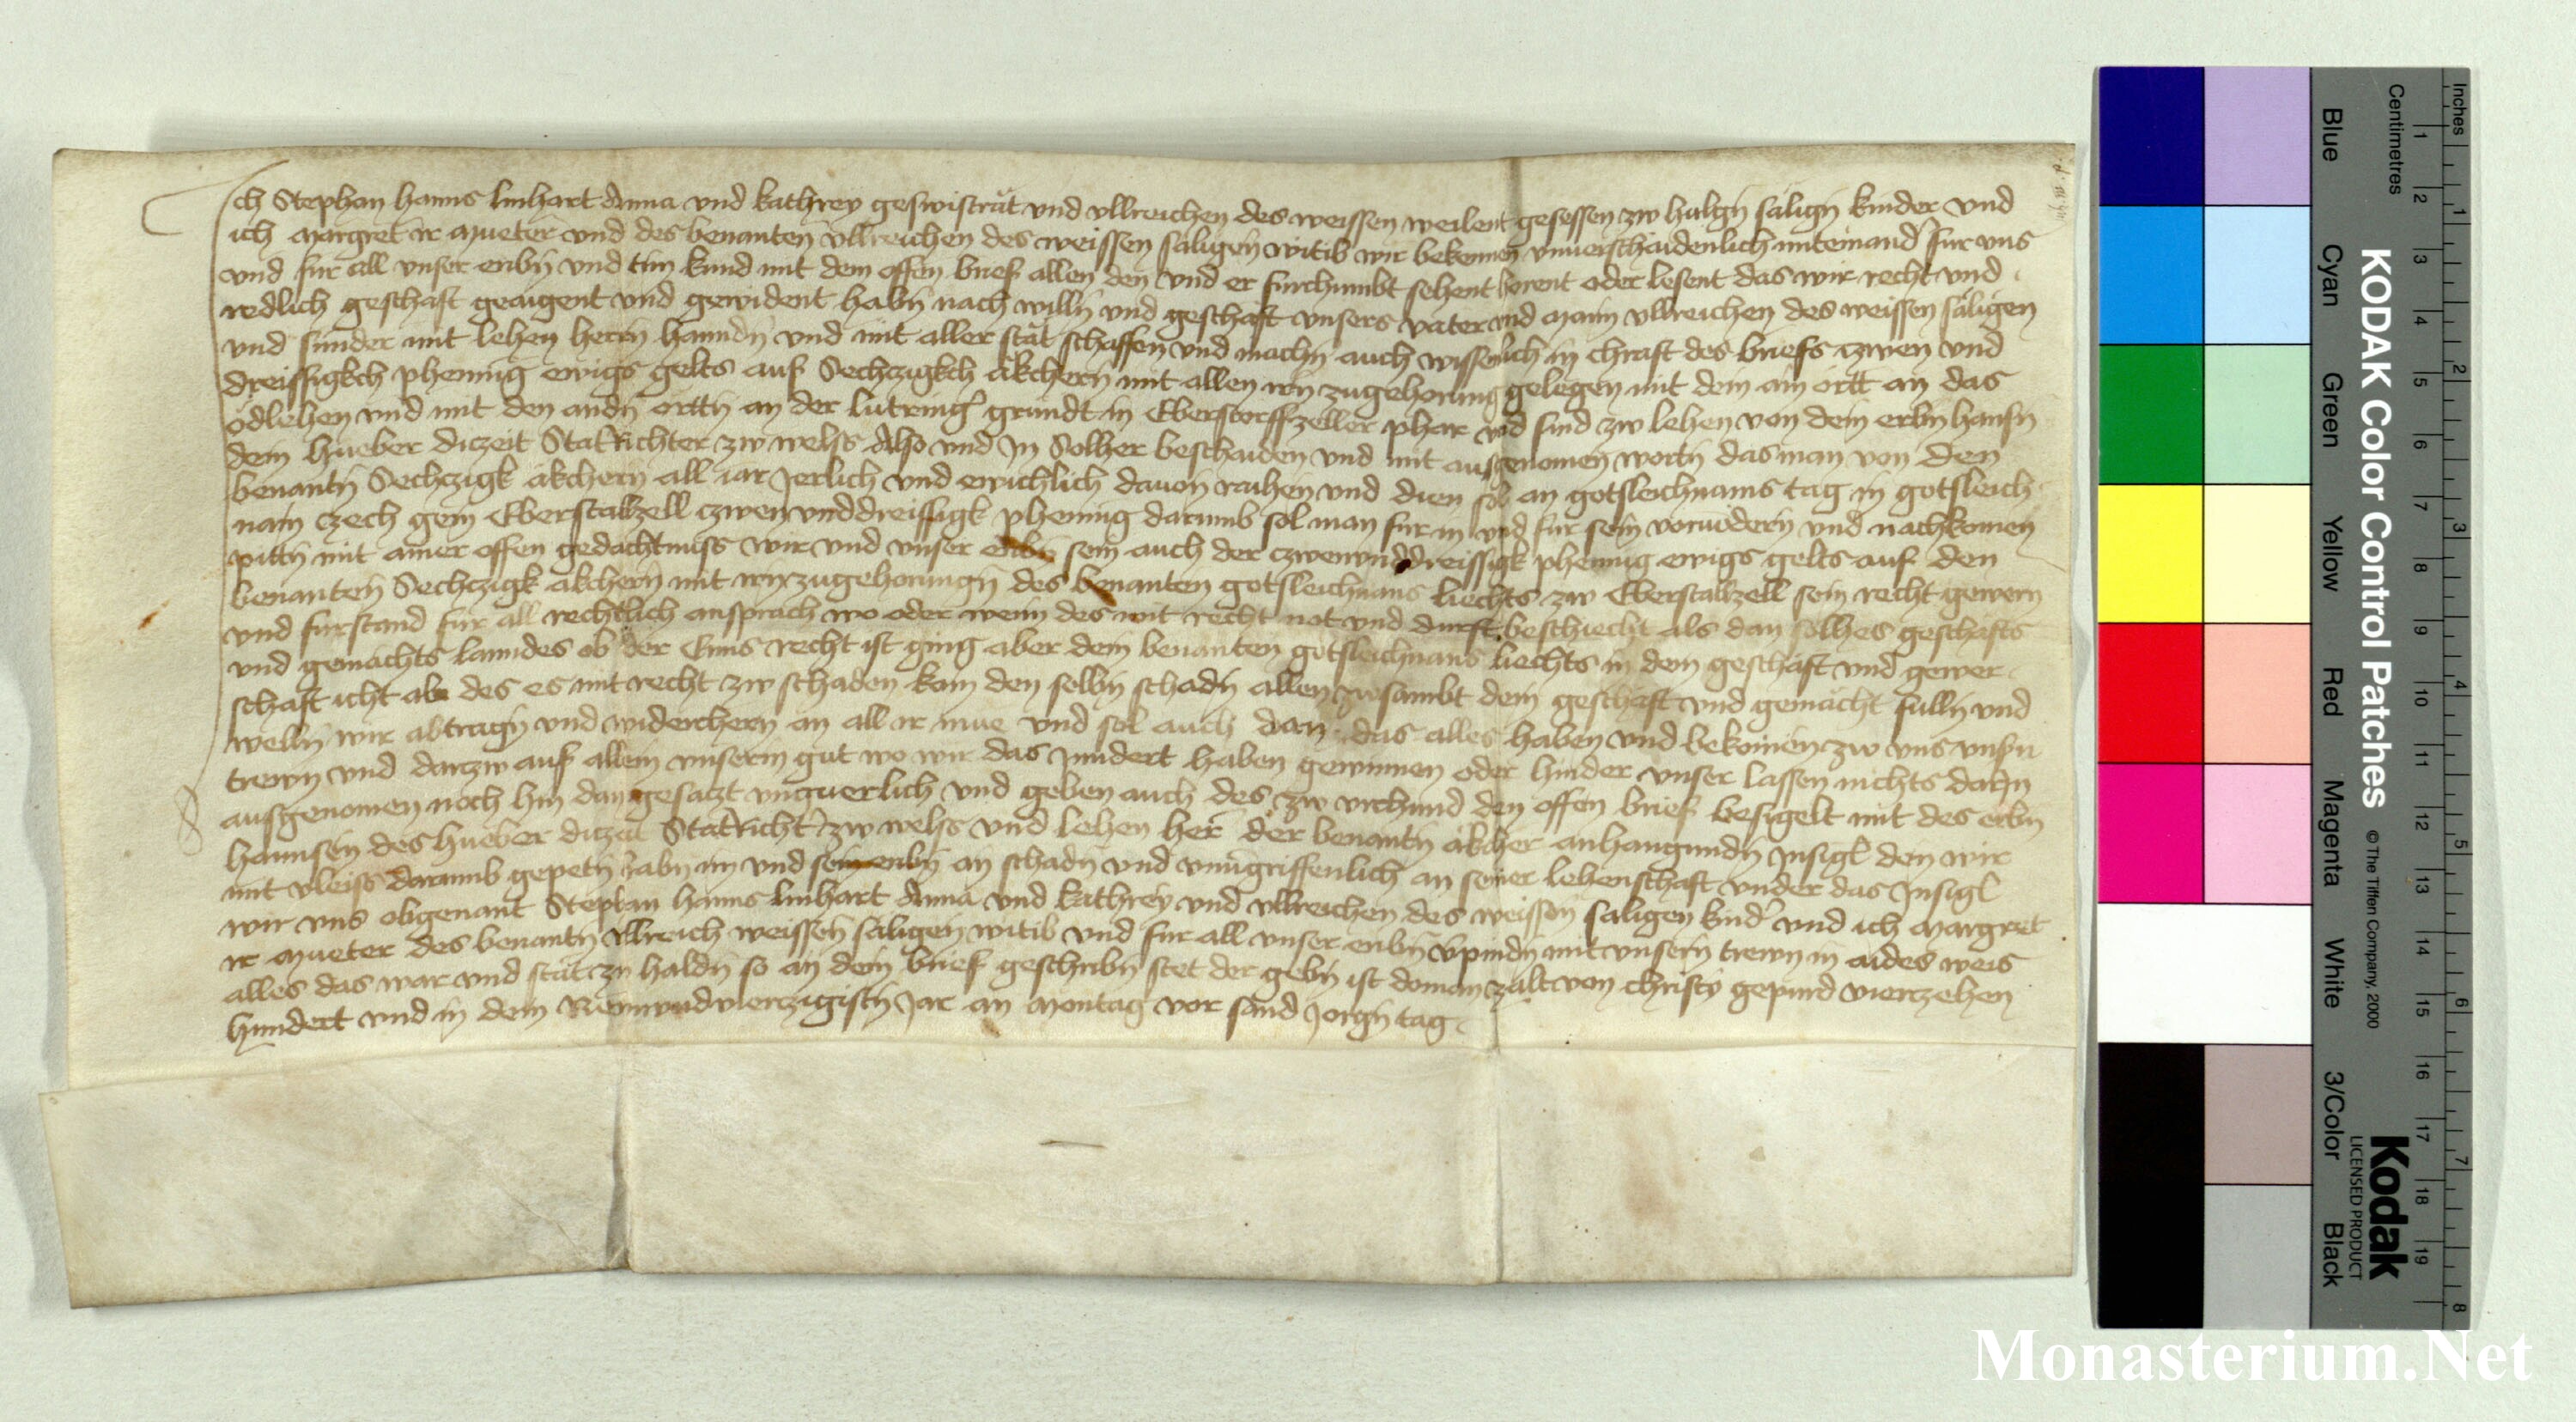 Ich Stephan hanns linhart Anna vnd kathrey geswistrat vnd vllreichen des weissen weilent gesessen zw halign säligen kinder vnd
ich margret ir mueter vnd des benanten vllreichen des weissen säligen witib wir bekennen vnuerschaidenlich miteinander fur vns
vnd fur all vnser eribn vnd tun kund mit dem offen brief allen den vnd er furchumbt sehent horent oder lesent das wir recht vnd
redlich geschaft geaigent vnd gewident habn nach willn vnd geschäft vnsers vater vnd mann vllreichen des weissen säligen
vnd sunder mit lehen herrn hanndn vnd mit aller stät schaffen vnd machn auch wissenlich in chraft des briefs czwen vnd
dreissigkch phennig ewigs gelts auf Sechczigkch äkchern mit allen irn zugehorung gelegen mit dem ain ortt an das
odlehen vnd mit den andn orttn an der lutringer grundt in Eberstorffzeller phar vnd sind zw lehen von dem erbn hansn
dem hueber diczeit StatRichter zw wells Also vnd In Solher beschaiden vnd mit ausgenomen wortn das man von den
benantn Sechczigk äkchern all iar Jerlich vnd ewichlich dauon raihen vnd dien sol an gotsleichnams tag in gotsleich
nam czech gein Eberstallzell czwenvnddreissigk phennig darumb sol man fur in vnd fur sein voruodern vnd nachkomen
pittn mit ainer offen gedachtnuss wir vnd vnser eribn sein auch der czwenvnddreissigk phennig ewigs gelts auf den
benanten Sechczigk äkchern mit irn zugehorungn des benanten gotsleichnams liechts zw Eberstallzell sein recht gewern
vnd furstand fur all rechtlich ansprach wo oder wenn des mit recht not vnd durft beschiecht als dan solhes geschäfts
vnd gemächts lanndes ob der Enns recht ist ging aber dem benanten gotsleichnams liechts in dem geschäft vnd gewer
schaft icht abe des es mit recht zw schaden kom den selbn schadn allen zwsambt dem geschäft vnd gemächt fulln vnd
welln wir abtragn vnd widerchern an all ir mue vnd sol auch dan das alles haben vnd bekomen zw vns vnsn
trewn vnd darzw auf allem vnserm gut wo wir das Jndert haben gewinnen oder hinder vnser lassen nichts darJn
ausgenomen noch hin dan gesatzt vngeuerlich vnd geben auch des zw vrchund den offen brief besigelt mit des erbn
hannsen des hueber diczeit StatRichter zw wells vnd lehen her der benantn äkcher anhangundn Jnsigl den wir
mit vleiss darumb gepetn habn im vnd sein eribn an schadn vnd vnuigriffenlich an seiner lehenschaft vnder das Jnsigl
wir vns obgenant Stephan hanns linhart Anna vnd kathrey vnd vllreichen des weissen säligen kinder vnd ich margret
ir mueter des benantn vllreich weissen säligen witib vnd fur all vnser eribn vpindn mit vnsern trewn in aides weis
alles das war vnd stät zu haldn so an dem brief geschribn stet der gebn ist do man zalt von christi gepurd vierzehen
hundert vnd in dem Newnvndvierczigistn Jar an Montag vor sand Jorgn tag
KODAK Color Control Patches
© The Tiffen Company, 2000
Kodak
LICENSED PRODUCT
Inches
Centimetres
Blue
Cyan
Green
Yellow
Red
Magenta
White
3/Color
Black
1 2 3 4 5 6 7 8 9 10 11 12 13 14 15 16 17 18 19
1 2 3 4 5 6 7 8
Monasterium.Net